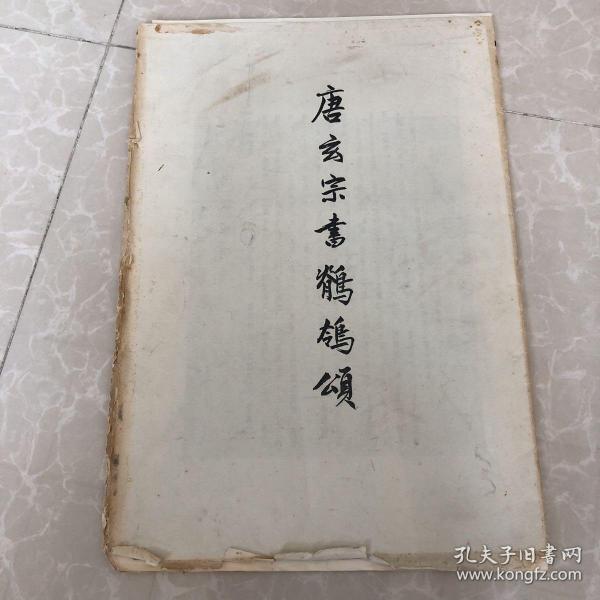 唐玄宗書鶺鴒頌
孔夫子旧書网
www.kongfz.com